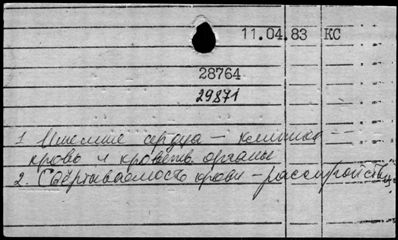 11.04.83 КС
28764
29871
1. Ишемие сердца – клиника
кровь и кроветв. органы
2. Свёртываемость крови – расстройства